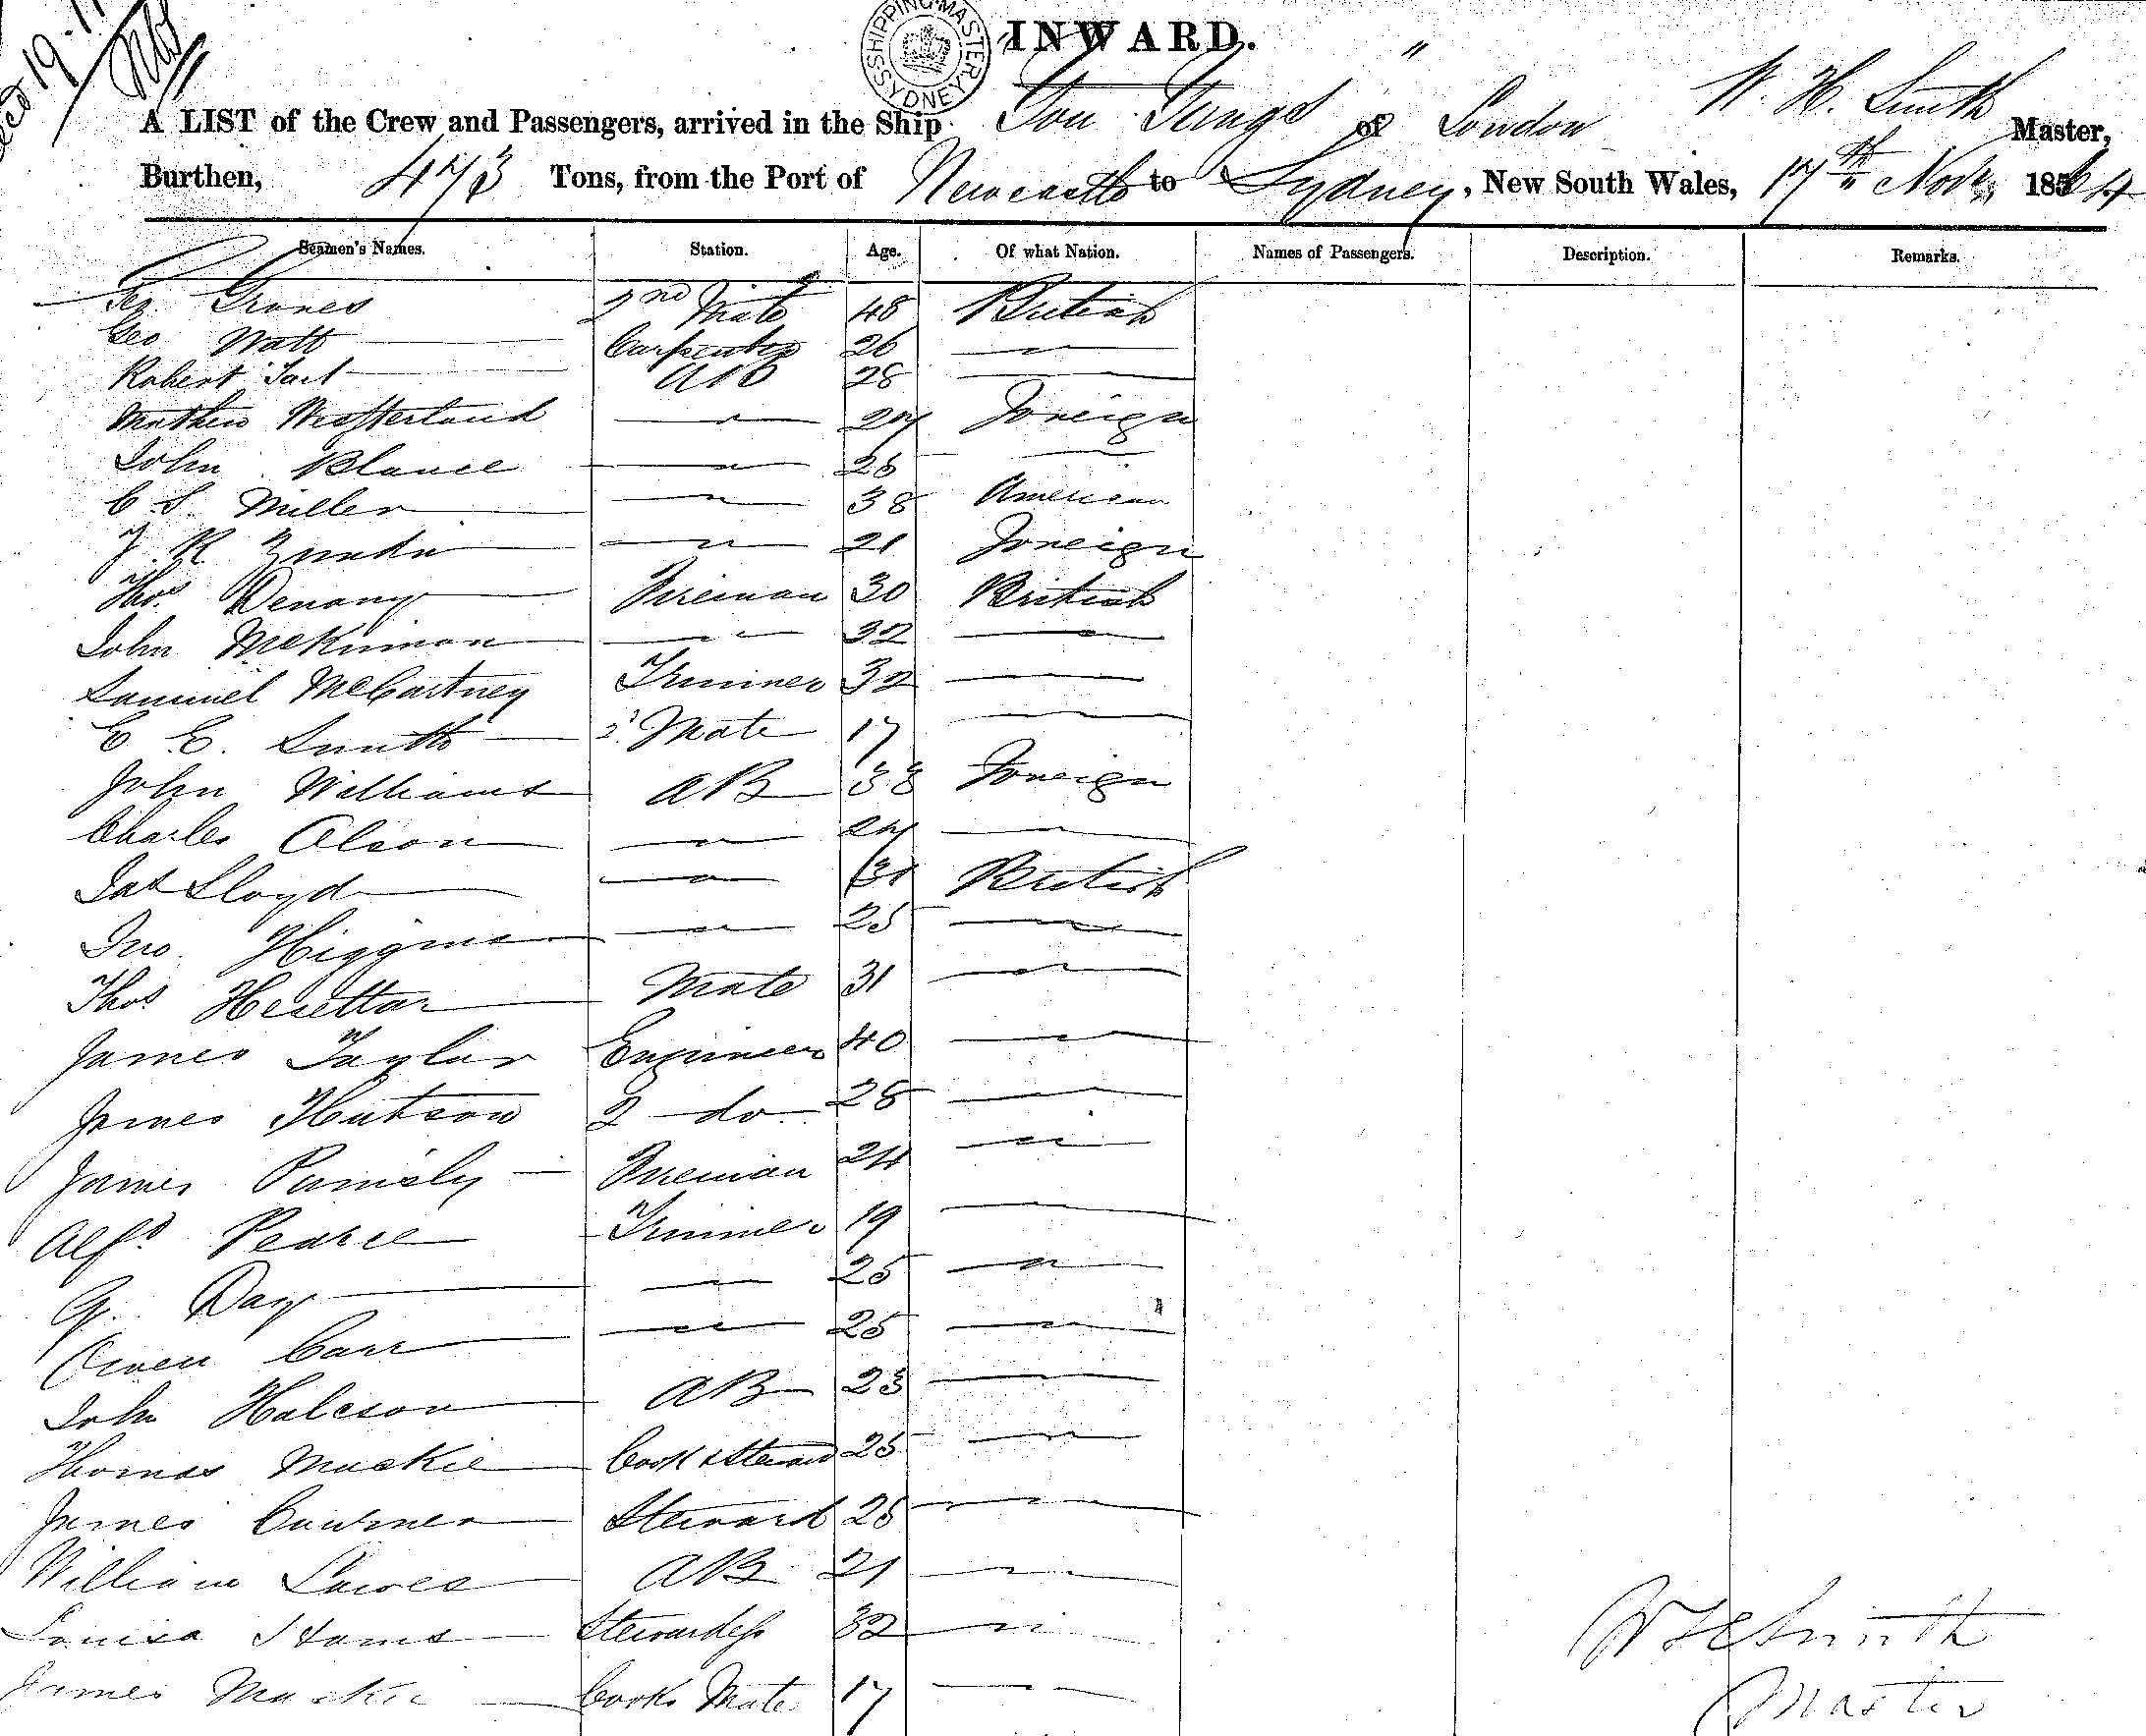 Recd 19.11
SHIPPING MASTER SYDNEY
INWARD.
A LIST of the Crew and Passengers, arrived in the Ship "You Yangs" of London W. H. Smith Master,
Burthen, 473 Tons, from the Port of Newcastle to Sydney, New South Wales, 17th Novr 1864
Seamen's Names. Station. Age. Of what Nation. Names of Passengers. Description. Remarks.
Geo Groves 2nd Mate 48 British
Geo Watt Carpenter 26 "
Robert Tait AB 28
Mathew " 27 Foreign
John Blance " 26
C S. Miller " 38 American
J R " 21 Foreign
Thos Denany Fireman 30 British
John McKinnon " 32 "
Samuel McCartney Trimmer 32 "
C E. Smith 2d Mate 17
John Williams AB 33 Foreign
Charles Olson " 24 "
Jas Lloyd " 31 British
Jno. Higgins " 25 "
Thos Mate 31 "
James Taylor Engineer 40 "
James Hutson 2 do 28 "
James Fireman 24 "
Alfd Pearce Trimmer 19
G. Day " 25 "
Owen Carr " 25 "
John Halcson AB 23 "
Thomas Mackie Cook & Steward 25 "
James Steward 25 "
William Lawes AB 21 "
Louisa Stewardess 32 "
James Mackie Cooks Mate 17 "
W H Smith
Master